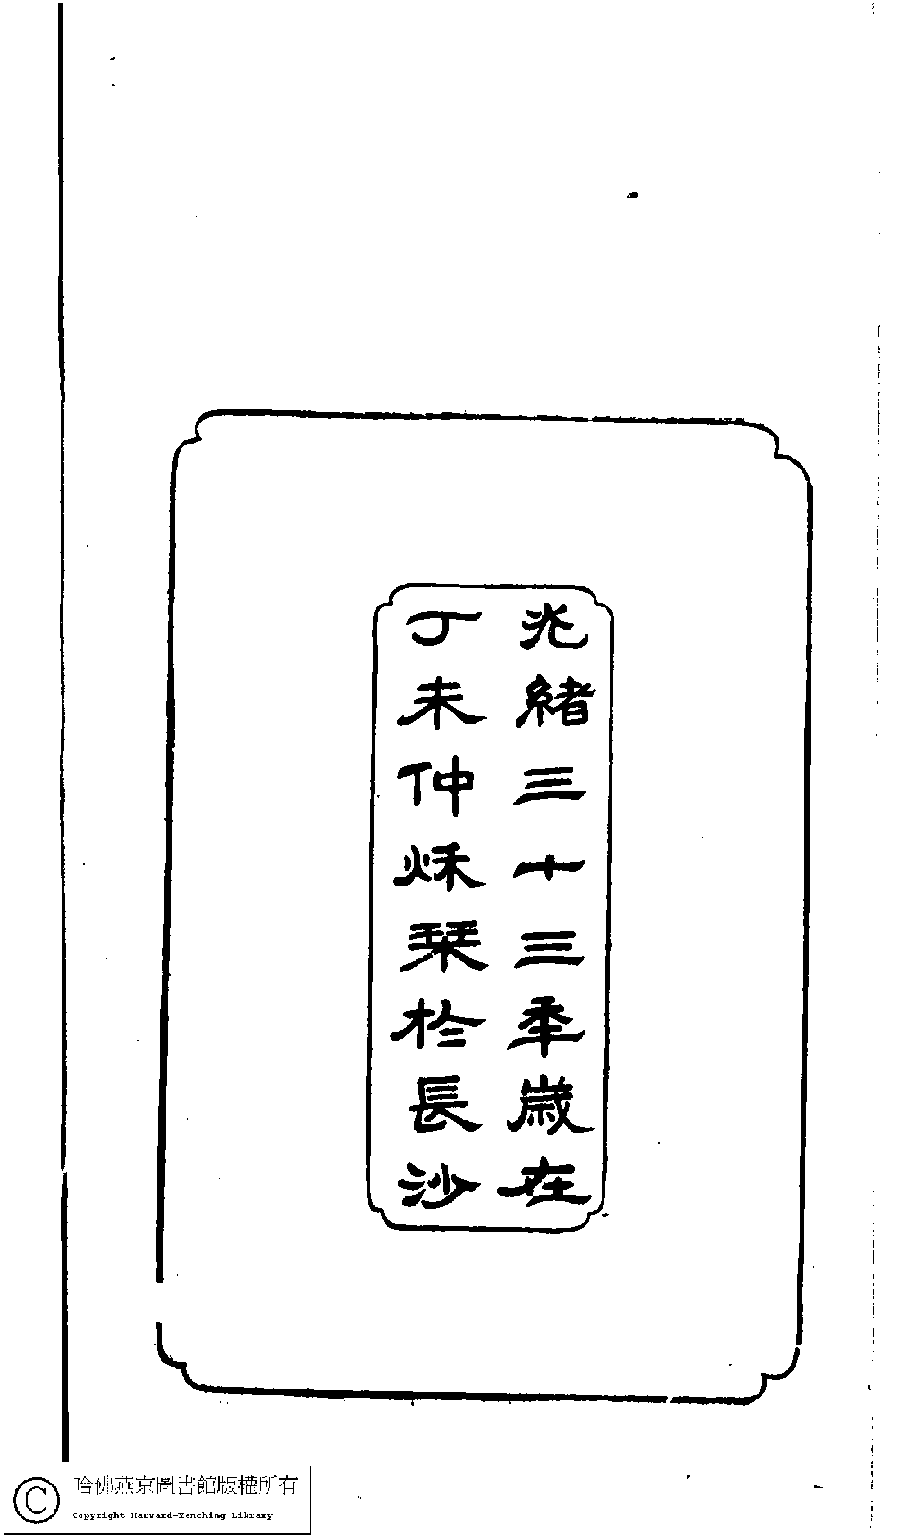 光緒三十三季歲在
丁未仲秌栞於長沙
哈佛燕京圖書館版權所有
Copyright Harvard-Yenching Library